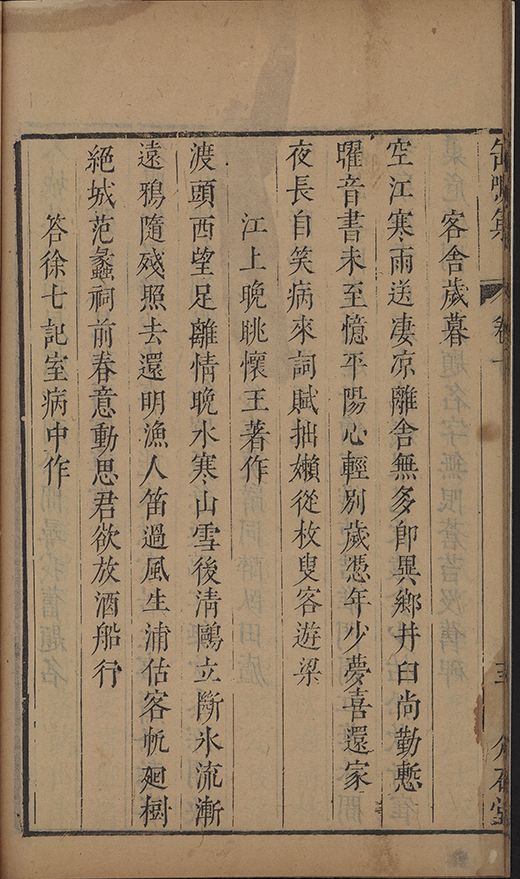 客舍歲暮
空江寒雨送凄凉離舍無多即異鄉井臼尚勤慙
曜音書未至憶平陽心輕别歲慿年少夢喜還家
夜長自笑病來詞賦拙嬾從枚叟客遊梁
江上晚眺懷王著作
渡頭西望足離情晚水寒山雪後清鷗立斷氷流漸
遠鴉隨殘照去還明漁人笛過風生浦估客帆廻樹
絕城范蠡祠前春意動思君欲放酒船行
答徐七記室病中作